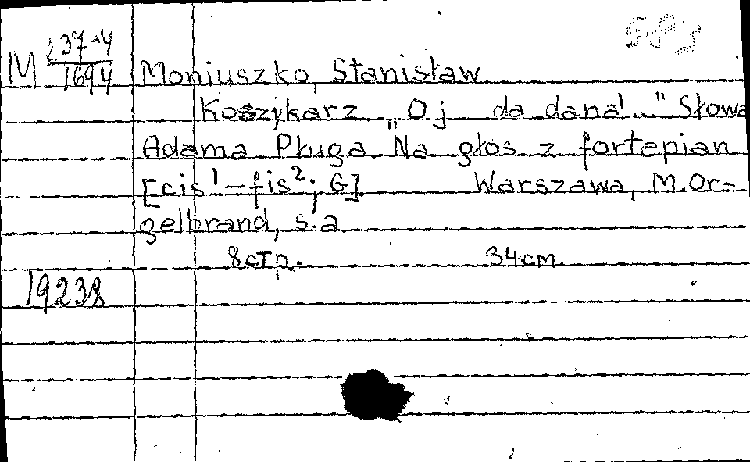 583
M 237-4
1694
Moniuszko, Stanisław
Koszykarz „Oj da dana!..." Słowa
Adama Pługa. Na głos z fortepian
[cis¹–fis²; G] Warszawa, M. Or-
gelbrand, s.a
8 стр. 34 cm.
19238